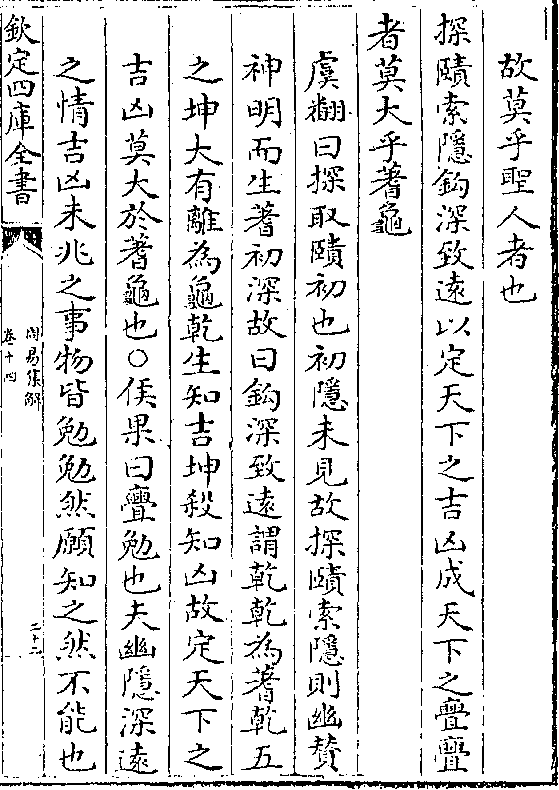 故莫乎聖人者也
探賾索隱鈎深致遠以定天下之吉凶成天下之亹亹
者莫大乎蓍龜
虞翻曰探取賾初也初隱未見故探賾索隱則幽贊
神明而生蓍初深故曰鈎深致遠謂乾乾為蓍乾五
之坤大有離為龜乾生知吉坤殺知凶故定天下之
吉凶莫大於蓍龜也○侯果曰亹勉也夫幽隱深遠
之情吉凶未兆之事物皆勉勉然願知之然不能也
欽定四庫全書
周易集解
卷十四
二十三